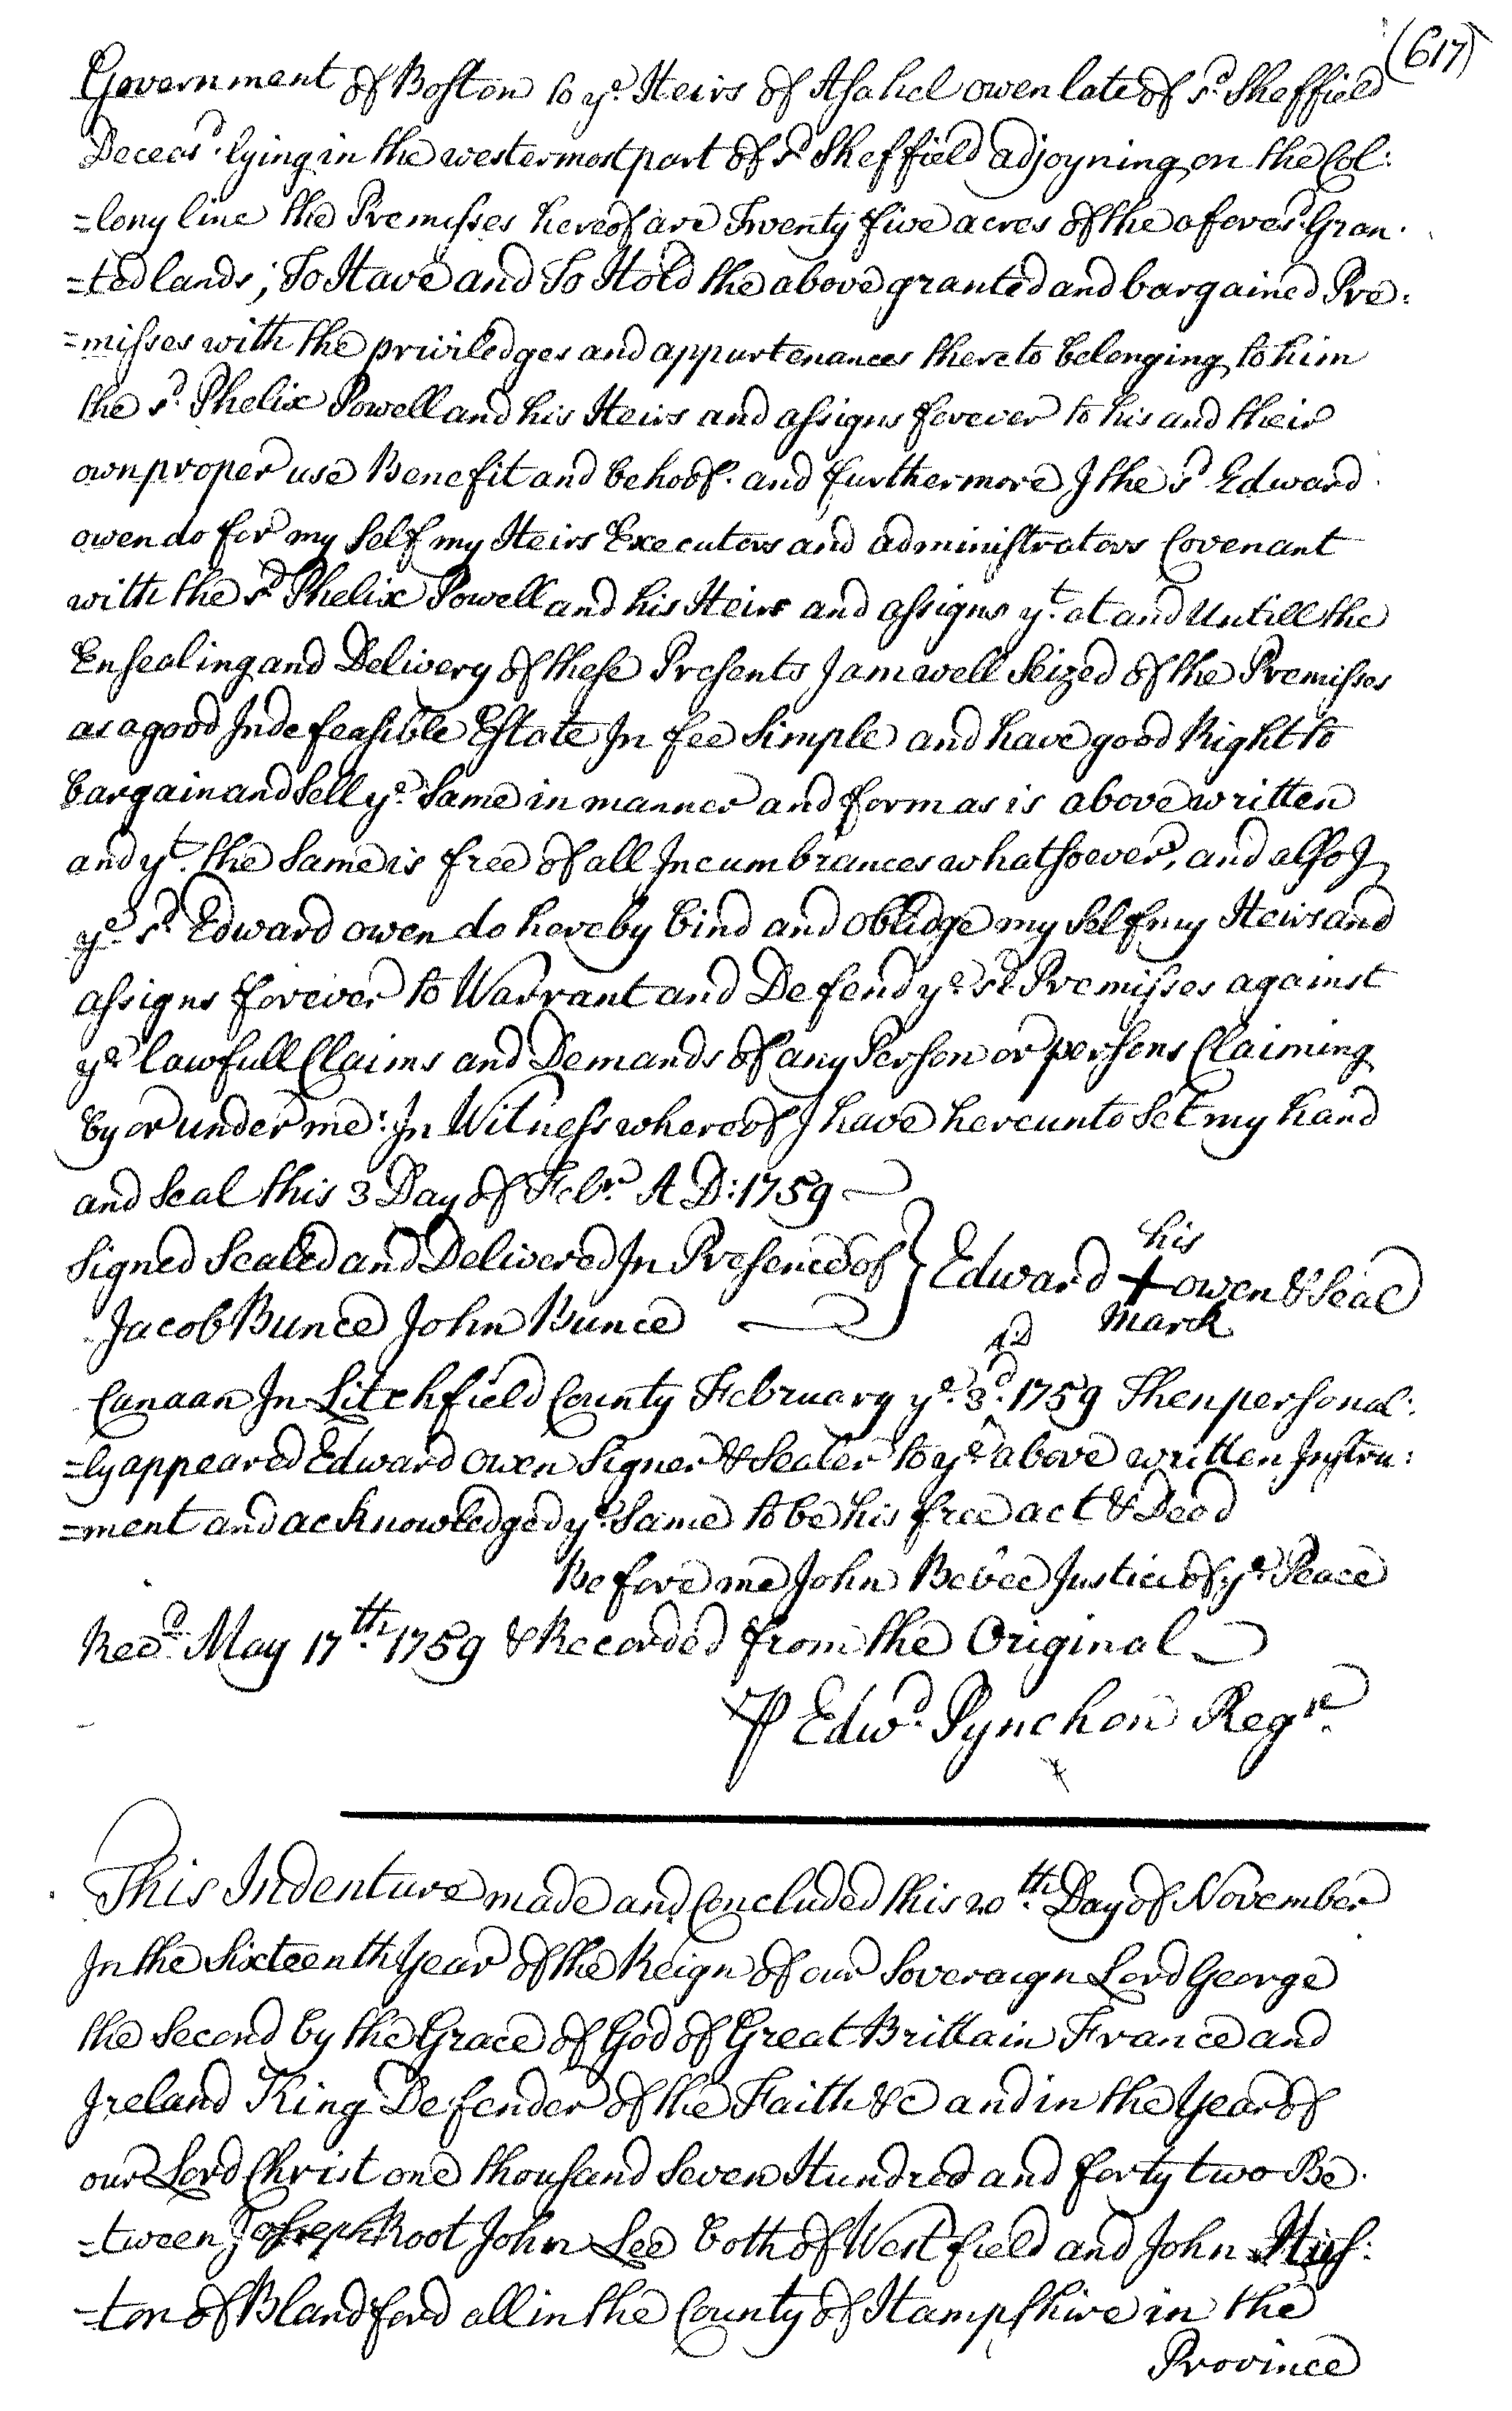 (617)
Government of Boston to ye. Heirs of Asahel owen late of sd. Sheffield
Deceasd. lying in the westermost part of sd Sheffield adjoyning on the Col:
=lony line the Premisses hereof are Twenty five acres of the aforesd. Gran.
=ted lands; To Have and To Hold the above granted and bargained Pre:
=misses with the priviledges and appurtenances thereto belonging to him
the sd. Phelix Powell and his Heirs and assigns forever to his and their
own proper use Benefit and behoof. and furthermore I the sd Edward
owen do for my self my Heirs Executors and administrators Covenant
with the sd. Phelix Powell and his Heirs and assigns yt. at and Untill the
Ensealing and Delivery of these Presents I am well Seized of the Premisses
as a good Indefeasible Estate In fee Simple and have good Right to
bargain and Sell ye. Same in manner and form as is above written
and yt. the Same is free of all Incumbrances whatsoever, and also I
ye. sd. Edward owen do hereby bind and oblidge my Self my Heirs and
assigns forever to Warrant and Defend ye. sd. Premisses against
ye. lawfull Claims and Demands of any Person or persons Claiming
by or under me: In Witness whereof I have hereunto Set my hand
and Seal this 3 Day of Febr. A D: 1759
Signed Sealed and Delivered In Presence of } Edward his + mark owen & Seal
Jacob Bunce John Bunce
Canaan In Litchfield County February ye. 3d. 1759 Then personal:
=ly appeared Edward owen Signer & Sealer to ye above written Instru:
=ment and acknowledged ye. Same to be his free act & Deed
Before me John Bebee Justice of ye. Peace
Recd. May 17th. 1759 & Recorded from the Original
P Edwd. Pynchon Regr.
This Indenture made and Concluded this 20th. Day of November
In the Sixteenth Year of the Reign of our Soveraign Lord George
the Second by the Grace of God of Great Brittain France and
Ireland King Defender of the Faith &c and in the Year of
our Lord Christ one thousand Seven Hundred and forty two Be.
=tween Joseph Root John Lee both of Westfield and John Hus:
=ton of Blandford all in the County of Hampshire in the
Province